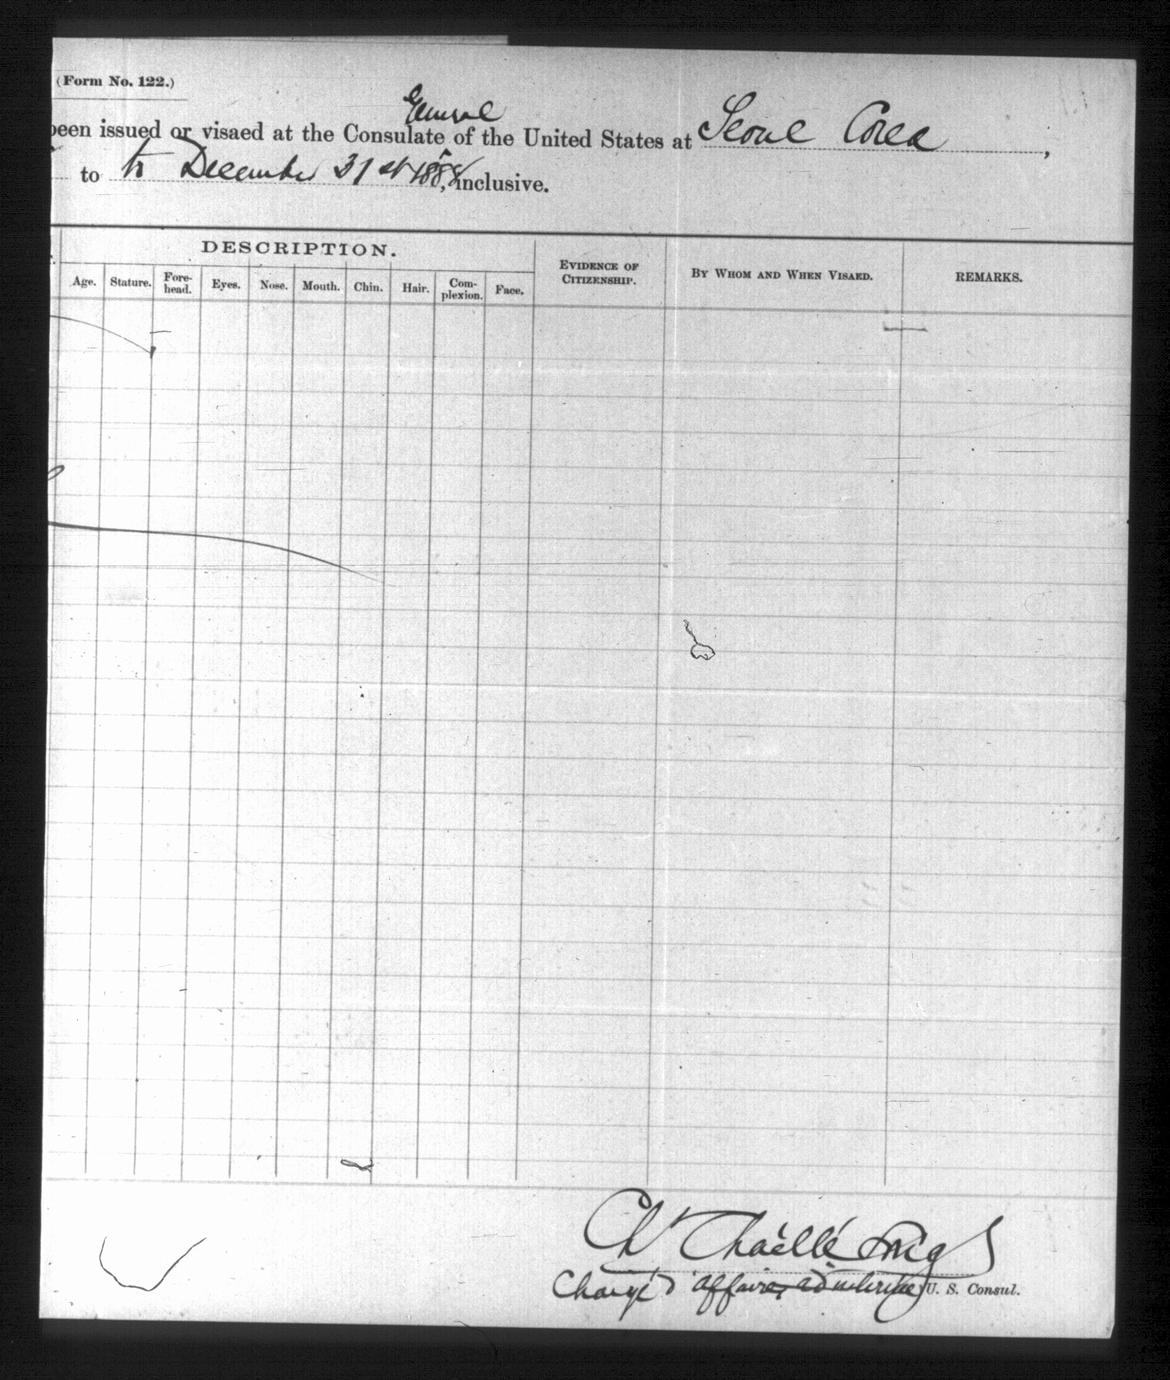 (Form No. 122.)
General
been issued or visaed at the Consulate of the United States at Seoul Corea,
to to December 31st 1888, inclusive.
DESCRIPTION.
Age. Stature. Fore-head. Eyes. Nose. Mouth. Chin. Hair. Com-plexion. Face. EVIDENCE OF CITIZENSHIP. BY WHOM AND WHEN VISAED. REMARKS.
Ch Chaillé Long
Chargé d'affaires ad interim U. S. Consul.